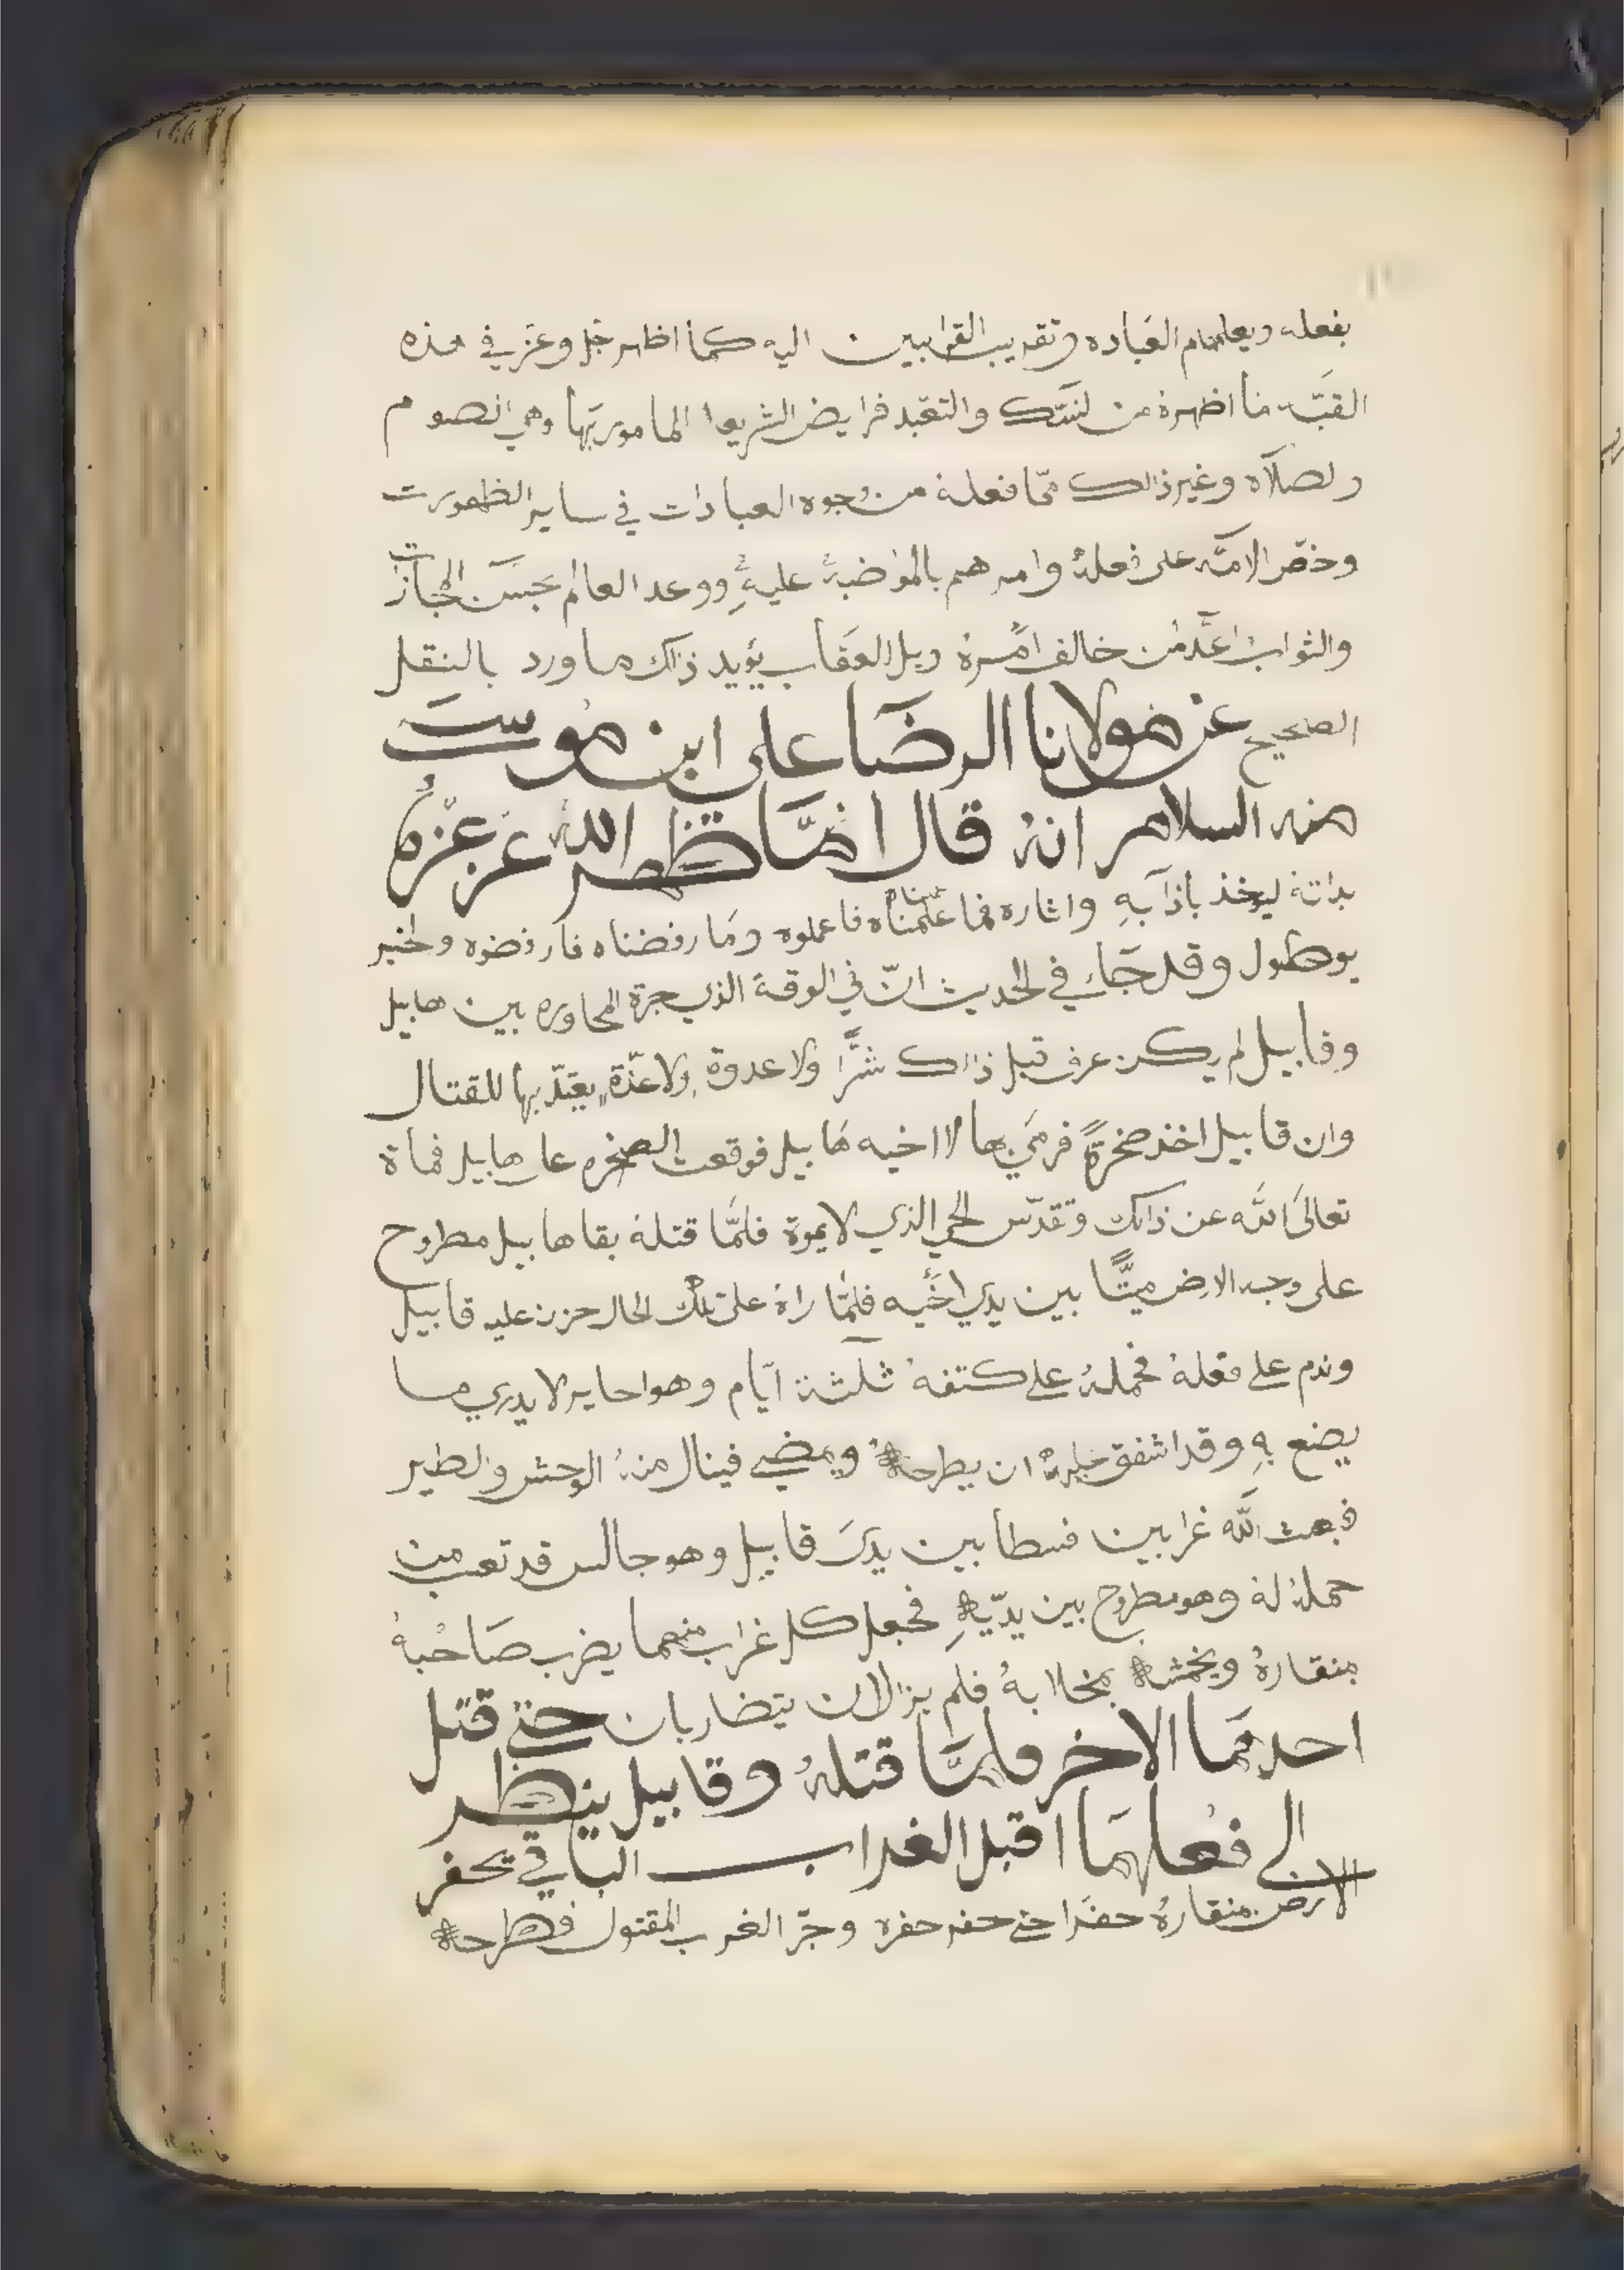 بفعله ويعلمهم العباده وتقريب القرابين اليه كما اظهر جل وعز في هذه
القبّة ما اظهرة من لنسك والتعبد فرايض الشريعا المامور بها وهي الصوم
ولصلاه وغير ذالك ممّا فعلهُ من وجوه العبادات في ساير الظهورت
وحضّ الامّه على فعلهُ وامرهم بالمواضبة عليهِ ووعد العالم بحسن المجازات
والثواب اعدّ من خالف امرهُ وبل العقاب يؤيد ذالك ما ورد بالنقل
الصحيح عن مولانا الرضا على ابن موسى
منه السلام انهُ قال انمّا ظهر الله عز عزه
بذاتهُ ليوخذ بأدابهِ واثاره فما علّمناه فاعملوه وما رفضناه فارفضوه ولخبر
يوطول وقد جاء في الحديث انّ في الوقة الذي جرة المحاوره بين هابيل
وقابيل لم يكن عرف قبل ذالك شرًّا ولا عدوة ولا عدّة يعتدّ بها للقتال
وان قابيل اخذ صخرةً فرمى بها لا اخيه هابيل فوقعت الصخره عا هابيل فماة
تعالى الله عن ذالك وتقدّس الحي الذي لا يموة فلمّا قتلهُ بقا هابيل مطروح
على وجه الارض ميتًّا بين يدي اخيه فلمّا راهُ على تلك الحال حزن عليه قابيل
وندم على فعلهُ فحملهُ على كتفهُ ثلثة ايّام وهوا حاير لا يدري ما
يصنع بهِ وقد اشفق عليهِ ان يطرحهُ ويمضي فينال منهُ الوحش والطير
فبعث الله غرابين فسطا بين يدى قابيل وهو جالس قد تعب من
حملهُ لهُ وهو مطروح بين يدّيهِ فجعل كل غراب منهما يضرب صاحبهُ
بمنقارهُ ويخمشهُ بمخلابهُ فلم يزالان يتضاربان حتى قتل
احدهما الاخر فلمّا قتلهُ وقابيل ينظر
الى فعلهما اقبل الغراب الباقي يحفر
الارض بمنقارهُ حفرًا حتى حفر حفره وجرّ الغرب المقتول فطرحهُ